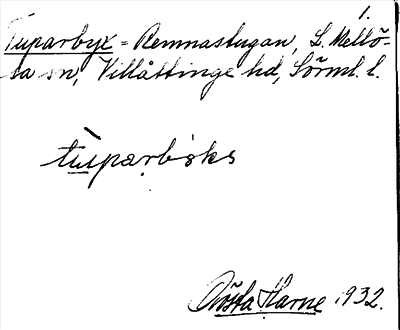 1.
Tuparbyx = Remnastugan, L. Mellö-
sa sn, Villåttinge hd, Sörml. l.
tùparbiks
Gösta Harne 1932.